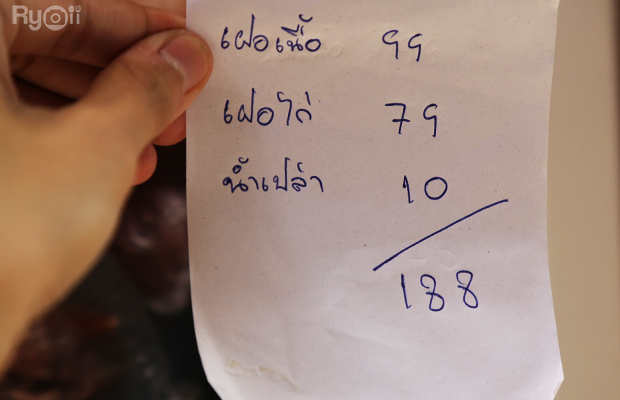 Ryoii
เฝอเนื้อ 99
เฝอไก่ 79
น้ำเปล่า 10
188